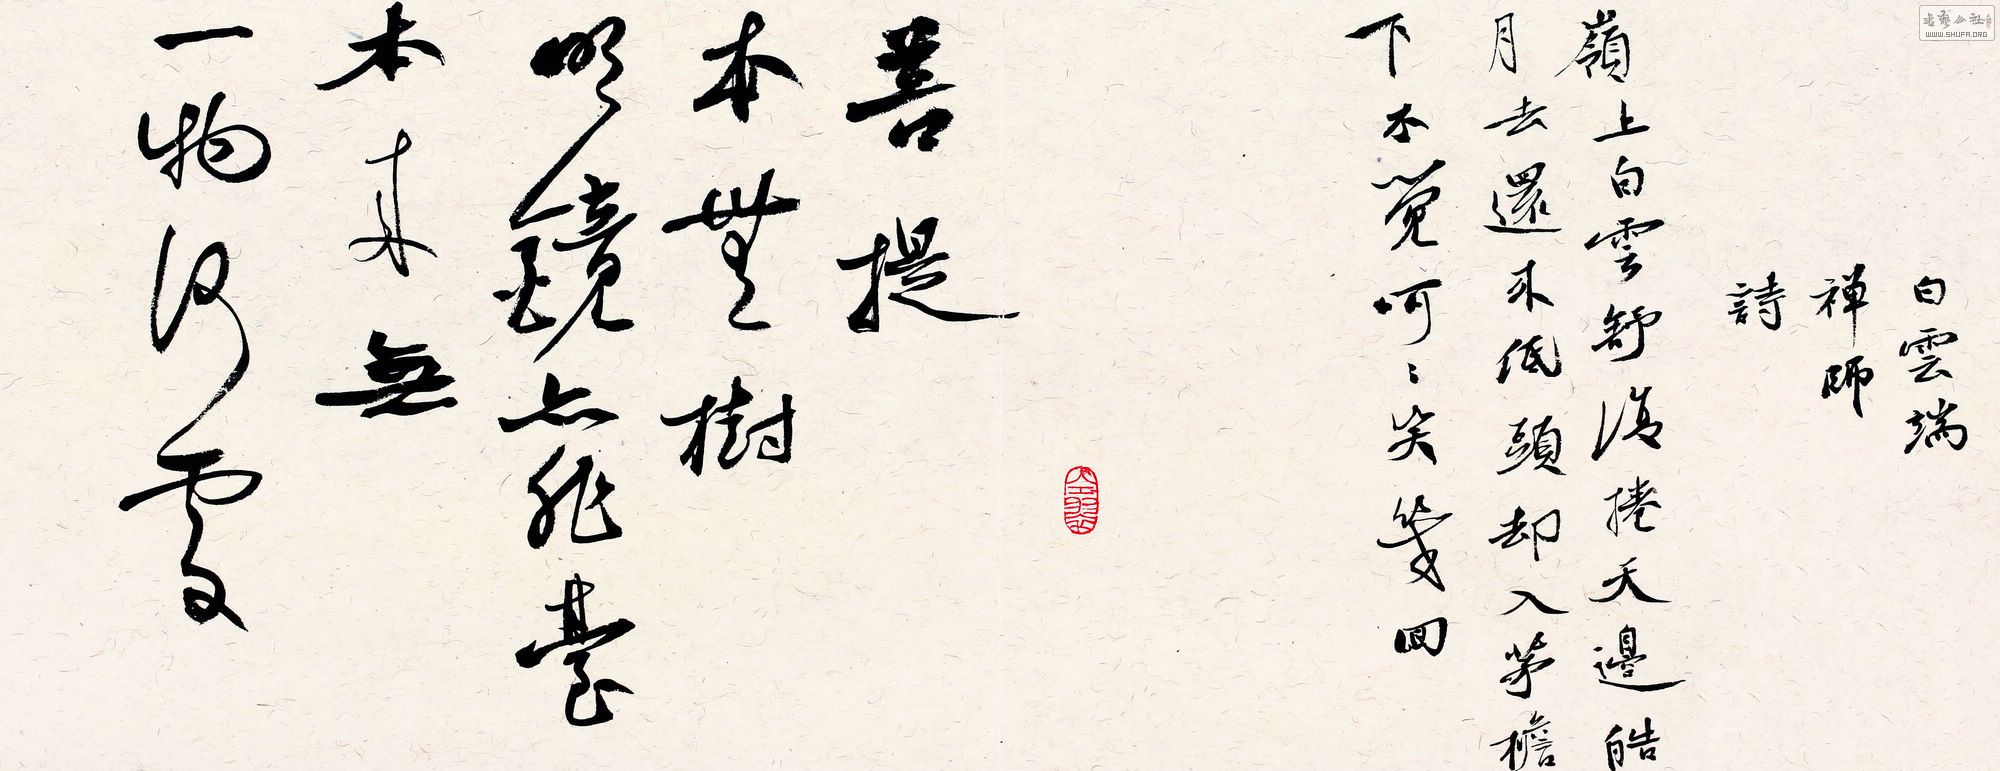 白雲端
禅師
詩
嶺上白雲舒復捲天邊皓
月去還来低頭却入茅檐
下不覚呵〻笑幾回
菩提
本無樹
明鏡亦非臺
本来無
一物何處
書藝公社
WWW.SHUFA.ORG